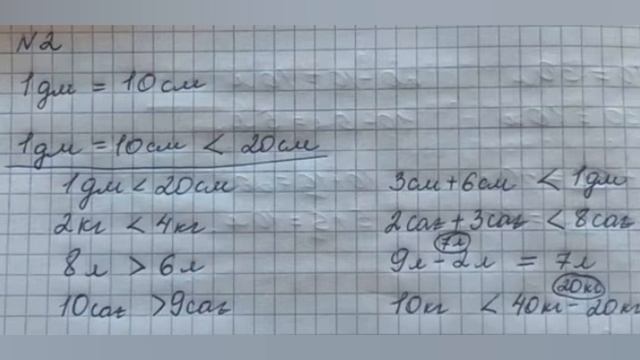 N2
1дм = 10см
1дм = 10см < 20см
1дм < 20см
2кг < 4кг
8л > 6л
10сағ > 9сағ
3см + 6см < 1дм
2сағ + 3сағ < 8сағ
7л
9л - 2л = 7л
20кг
10кг < 40кг - 20кг